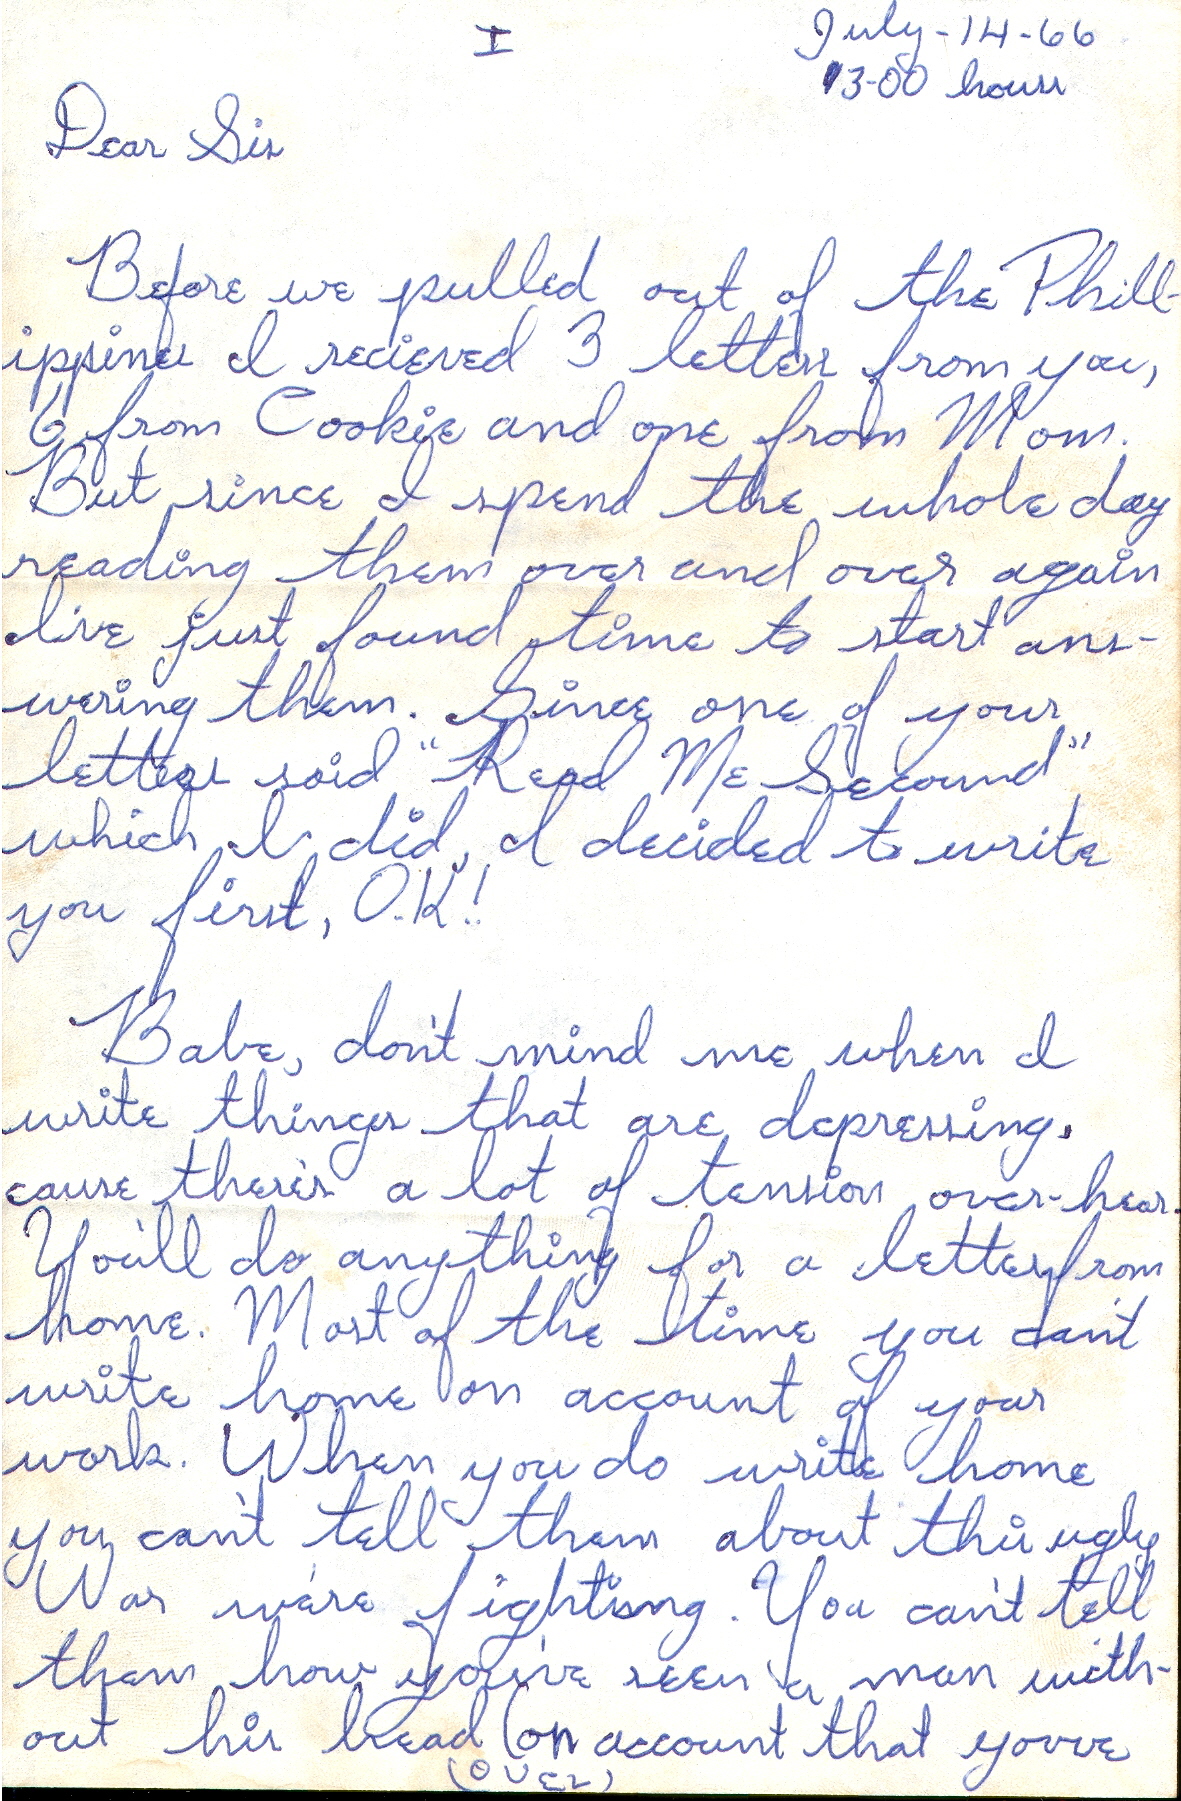 I
July-14-66
13-00 hours
Dear Sis
Before we pulled out of the Phill-
ippines I recieved 3 letters from you,
6 from Cookie and one from Mom.
But since I spend the whole day
reading them over and over again
I've just found time to start ans-
wering them. Since one of your
letters said "Read Me Secound"
which I did, I decided to write
you first, O.K!
Babe, don't mind me when I
write things that are depressing.
cause there's a lot of tension over-hear.
You'll do anything for a letter from
home. Most of the time you can't
write home on account of your
work. When you do write home
you can't tell them about this ugly
War we're fighting. You can't tell
them how you've seen a man with-
out his head (on account that youve
(OVER)